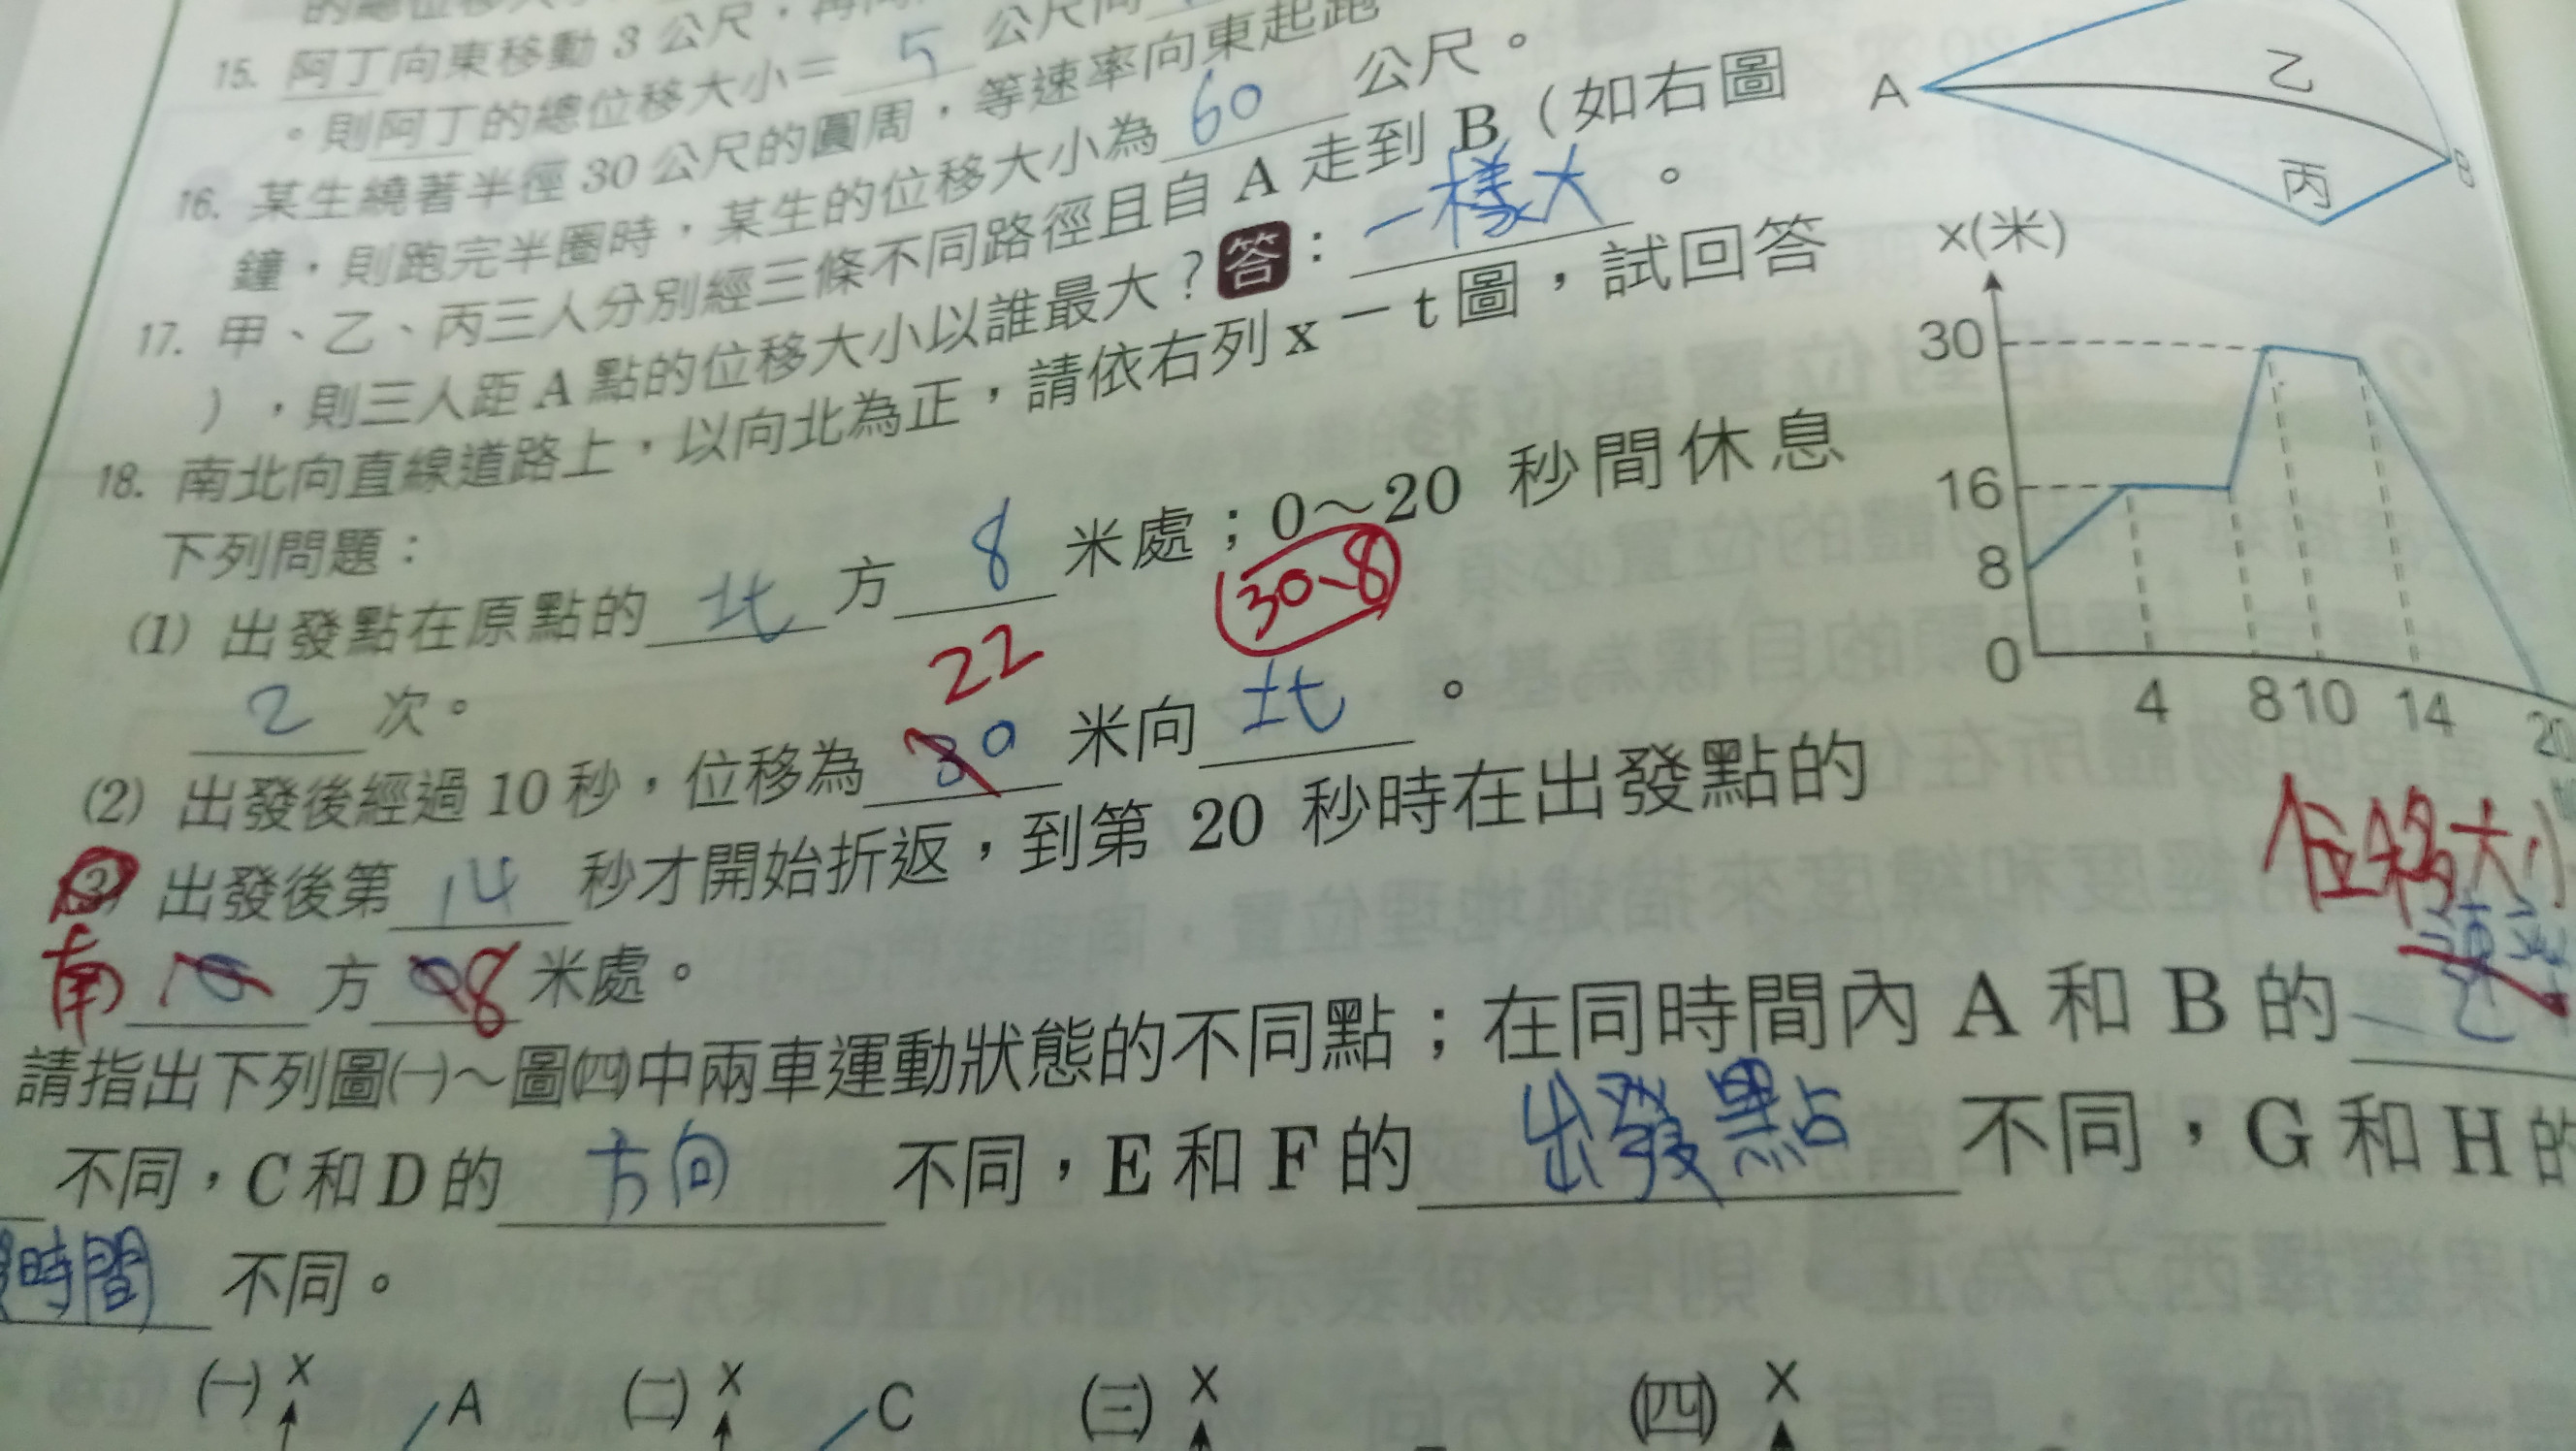 的總位移大小
15. 阿丁向東移動 3 公尺，再向
。則阿丁的總位移大小＝ 5 公尺向
16. 某生繞著半徑 30 公尺的圓周，等速率向東起跑
鐘，則跑完半圈時，某生的位移大小為 60 公尺。
17. 甲、乙、丙三人分別經三條不同路徑且自 A 走到 B（如右圖
），則三人距 A 點的位移大小以誰最大？答：一樣大。
18. 南北向直線道路上，以向北為正，請依右列 x－t 圖，試回答
下列問題：
(1) 出發點在原點的 北 方 8 米處；0～20 秒間休息
2 次。
22 30-8
(2) 出發後經過 10 秒，位移為 30 米向 北 。
(3) 出發後第 14 秒才開始折返，到第 20 秒時在出發點的
南 方 8 米處。
請指出下列圖㈠～圖㈣中兩車運動狀態的不同點；在同時間內 A 和 B 的
不同，C 和 D 的 方向 不同，E 和 F 的 出發點 不同，G 和 H 的
時間 不同。
㈠ x A
㈡ x C
㈢ x
㈣ x
A
乙
丙
B
x(米)
30
16
8
0
4 8 10 14 20
位移大小